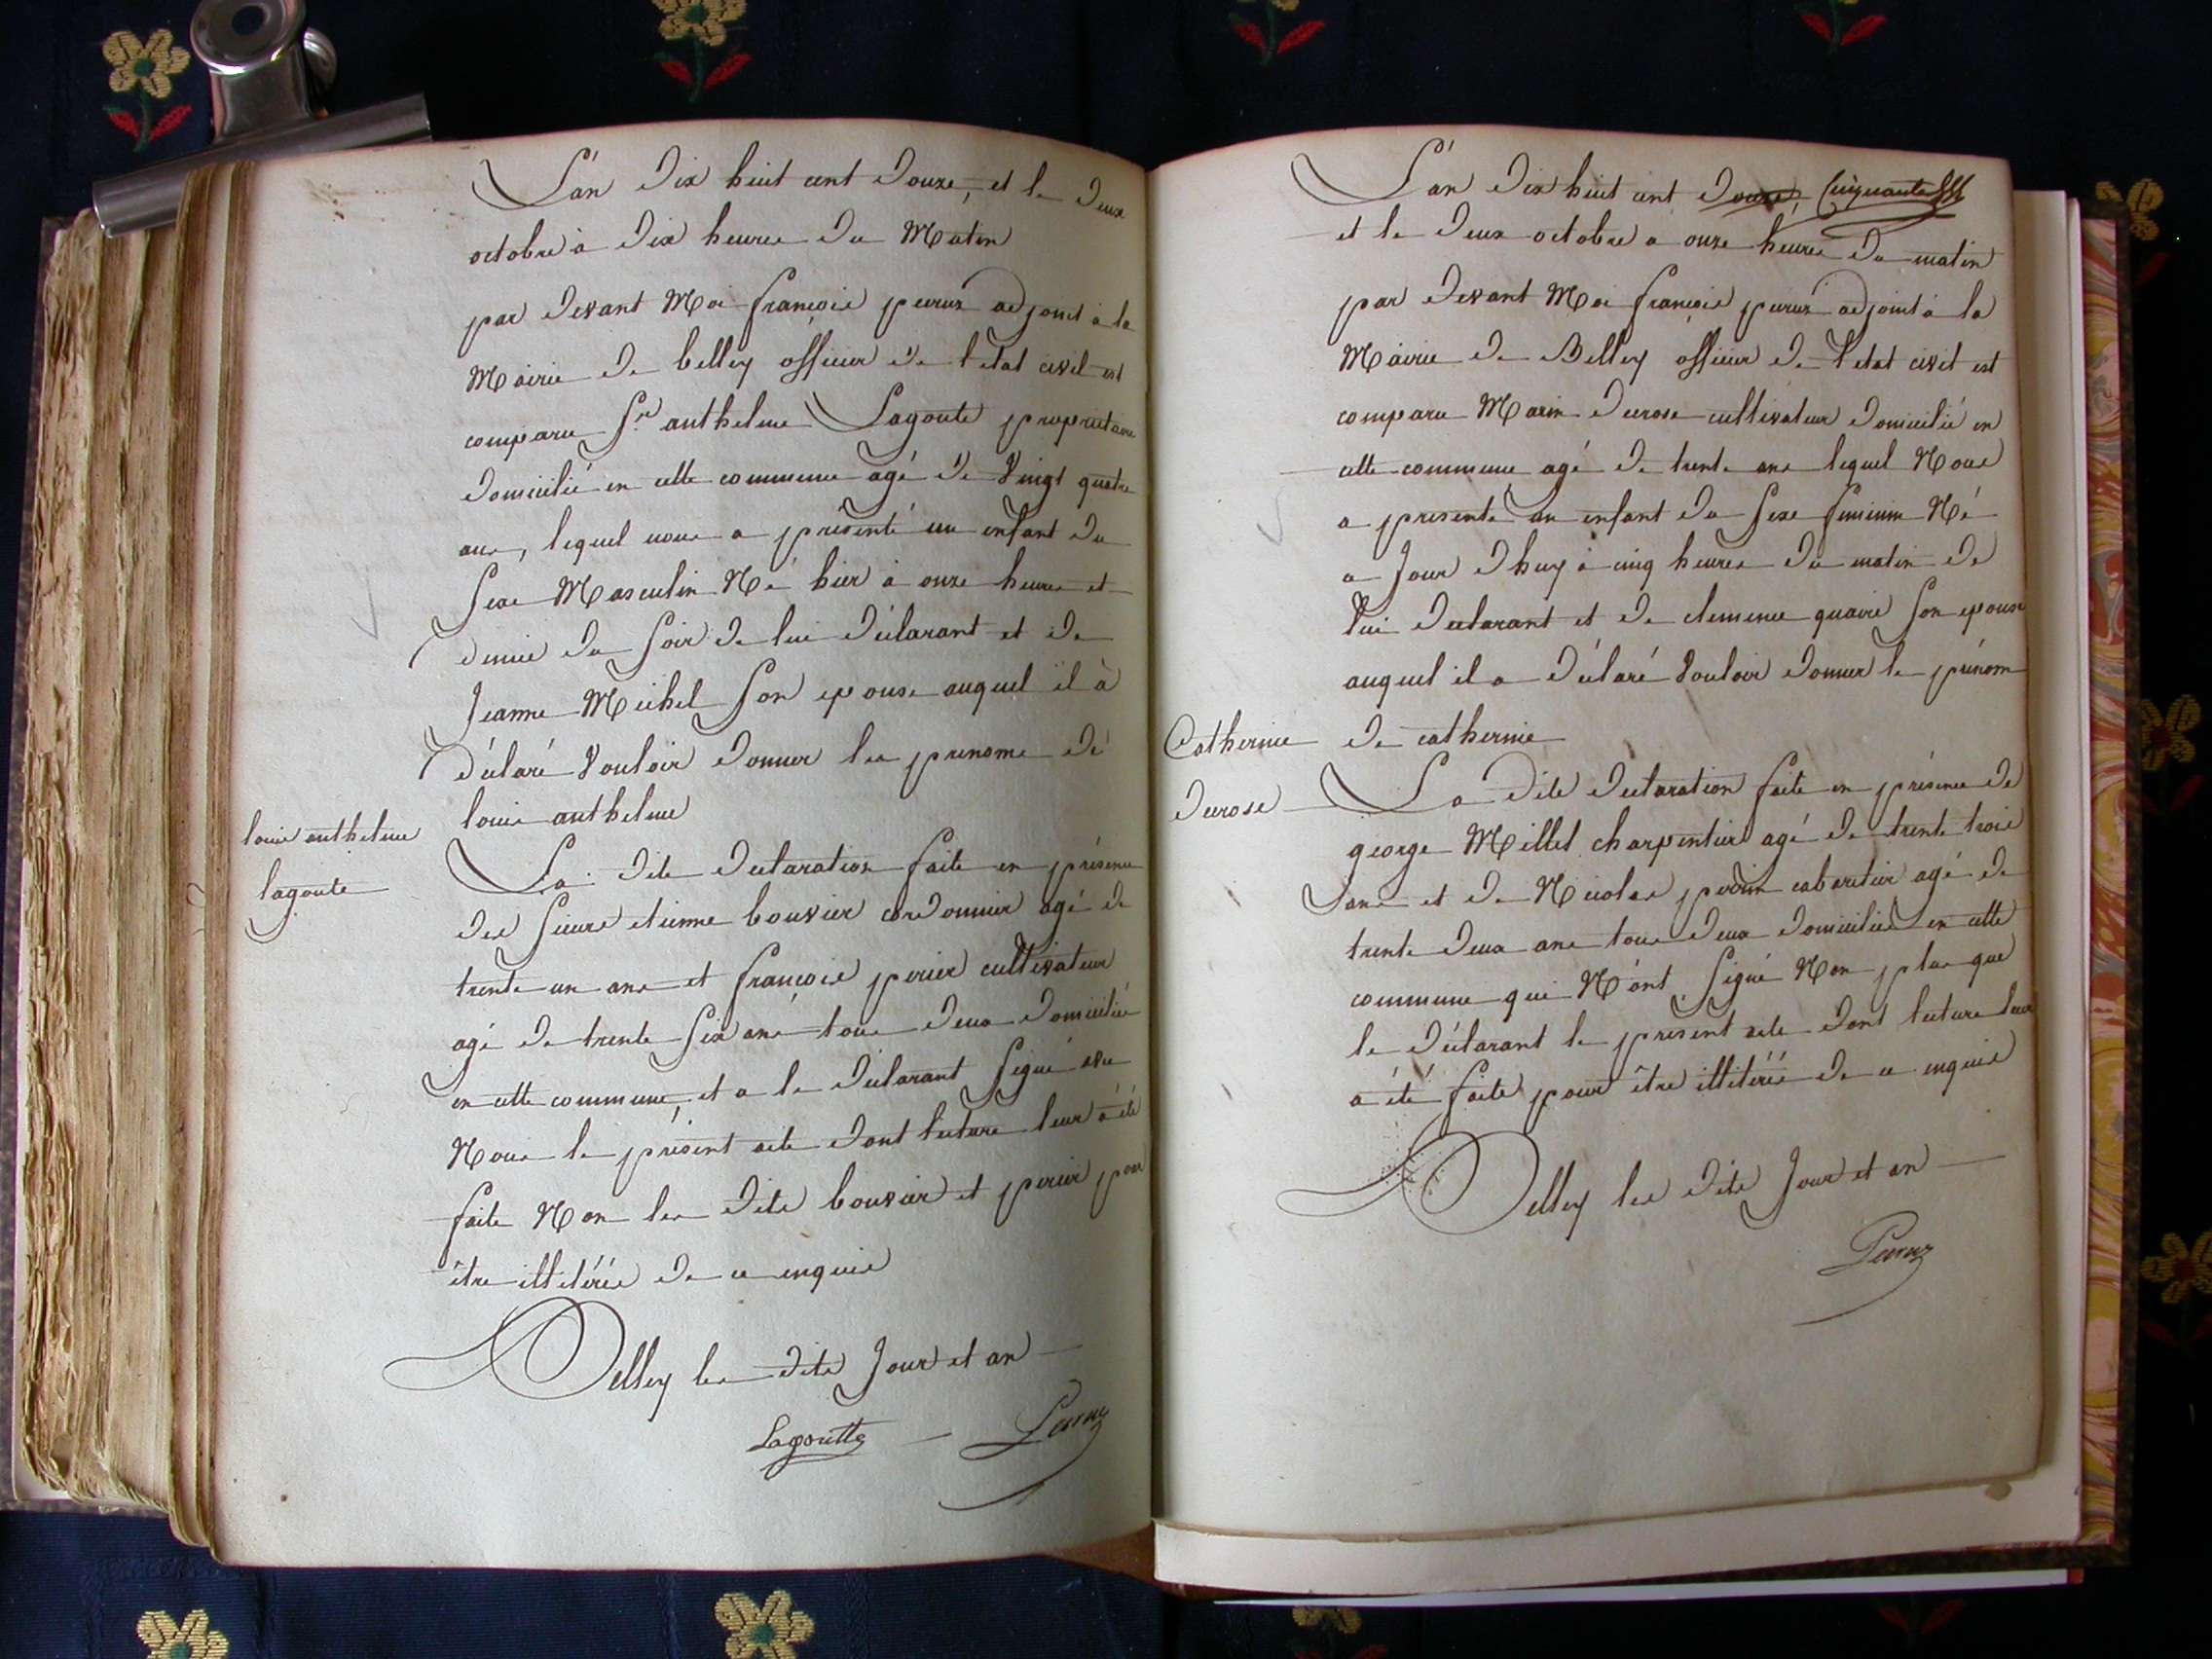 L'an dix huit cent douze, et le deux
octobre à dix heures du Matin
par devant Moi françois peruz adjoint à la
Mairie de belley officier de l'etat civil est
comparu Sr. anthelme Lagoute propriétaire
domicilié en cette commune agé de vingt quatre
ans, lequel nous a présenté un enfant du
Sexe Masculin Né hier à onze heures et
demie du Soir de lui déclarant et de
Jeanne Michel Son epouse auquel il à
déclaré vouloir donner les prenoms de
louis anthelme
louis anthelme
lagoute
La dite declaration faite en présence
des Sieurs etienne bouvier cordonnier agé de
trente un ans et françois perier cultivateur
agé de trente Six ans tous deux domiciliés
en cette commune, et a le déclarant Signé avec
Nous le présent acte dont lecture leur à été
faite Non les dits bouvier et perier pour
être illitérés de ce enquis
Belley les dits Jour et an
Lagoutte Peruz
L'an dix huit cent douze,
et le deux octobre a onze heures du matin
par devant Moi françois peruz adjoint à la
Mairie de Belley officier de l'etat civil est
comparu Marin durose cultivateur domicilié en
cette commune agé de trente ans lequel Nous
a presenté un enfant du Sexe feminin Né
a Jour d'huy à cinq heures du matin de
lui declarant et de clemence quaire Son epouse
auquel il a déclaré vouloir donner le prénom
de catherine
Catherine
durose
La dite declaration faite en présence de
george Millet charpentier agé de trente trois
ans et de Nicolas perrin cabaretier agé de
trente deux ans tous deux domiciliés en cette
commune qui N'ont Signé Non plus que
le déclarant le présent acte dont lecture leur
a été faite pour être illitérés de ce enquis
Belley les dits Jour et an
Peruz